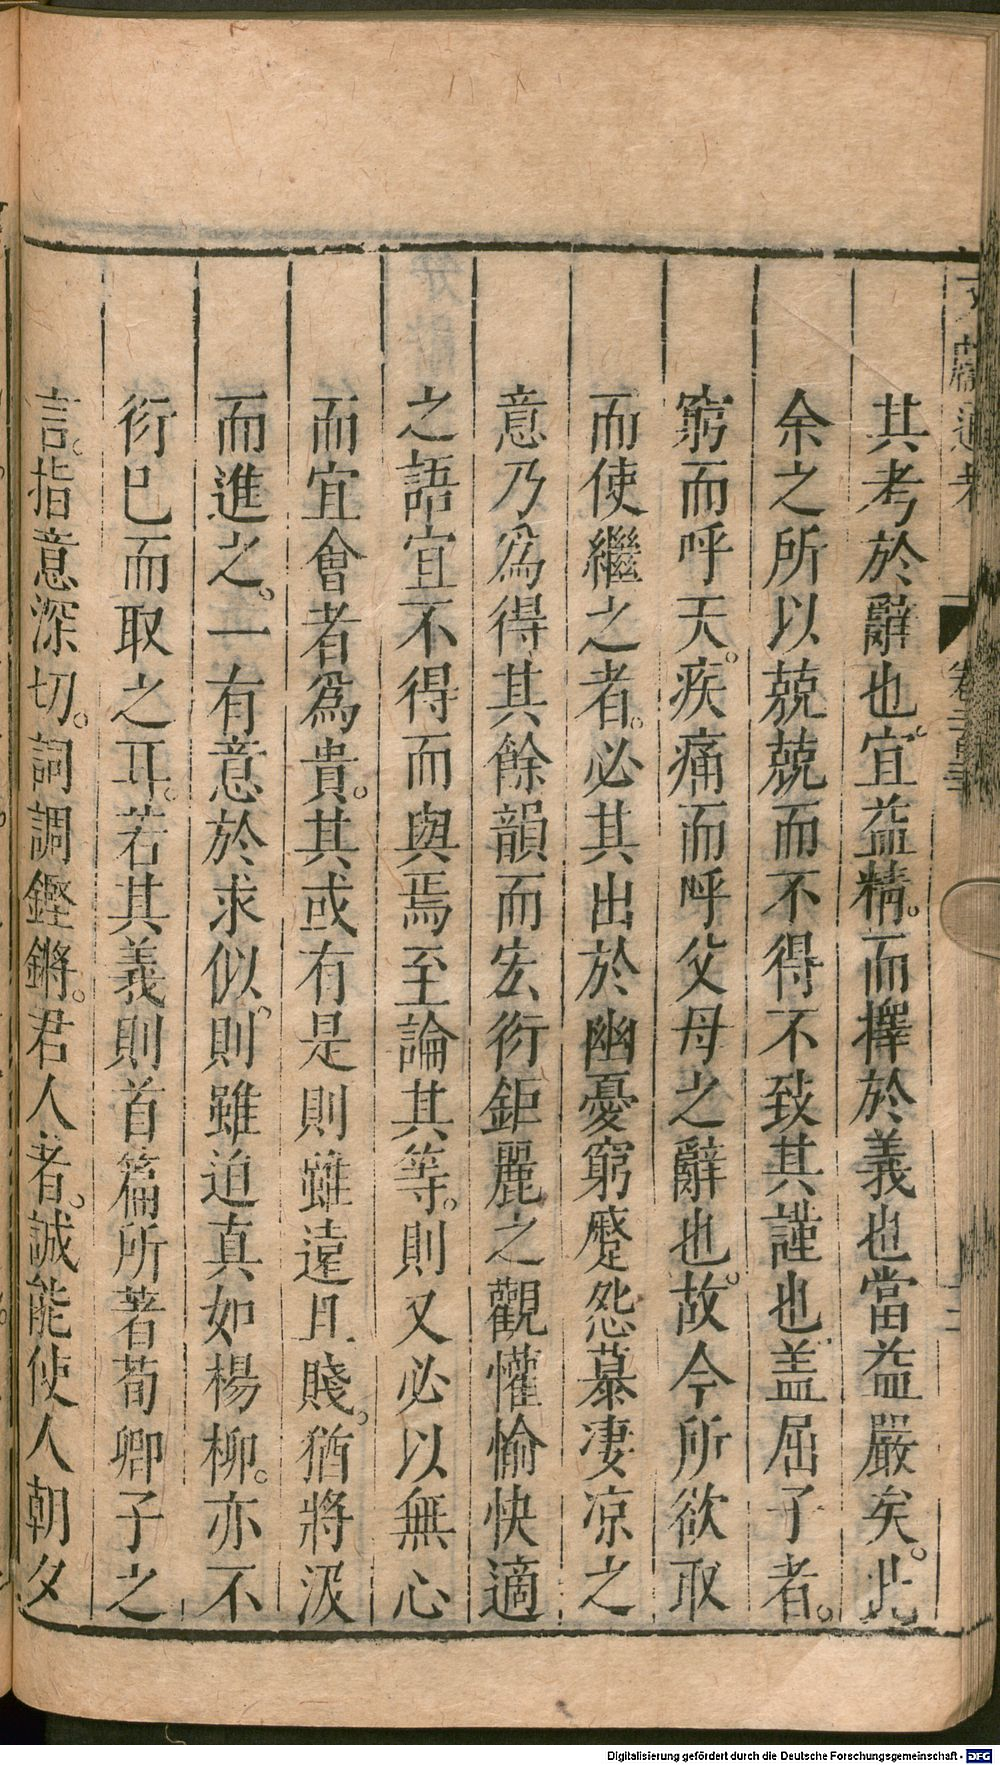 其考於辭也宜益精。而擇於義也當益嚴矣。此
余之所以兢兢而不得不致其謹也盖屈子者。
窮而呼天。疾痛而呼父母之辭也。故今所欲取
而使繼之者。必其出於幽憂窮蹙怨慕凄凉之
意乃爲得其餘韻而宏衍鉅麗之觀懽愉快適
之語宜不得而與焉至論其等。則又必以無心
而宜會者爲貴。其或有是則雖遠且賤。猶將汲
而進之。一有意於求似。則雖迫真如楊柳。亦不
衍巳而取之耳。若其義則首篇所著荀卿子之
言。指意深切。詞調鏗鏘。君人者。誠能使人朝夕
Digitalisierung gefördert durch die Deutsche Forschungsgemeinschaft - DFG